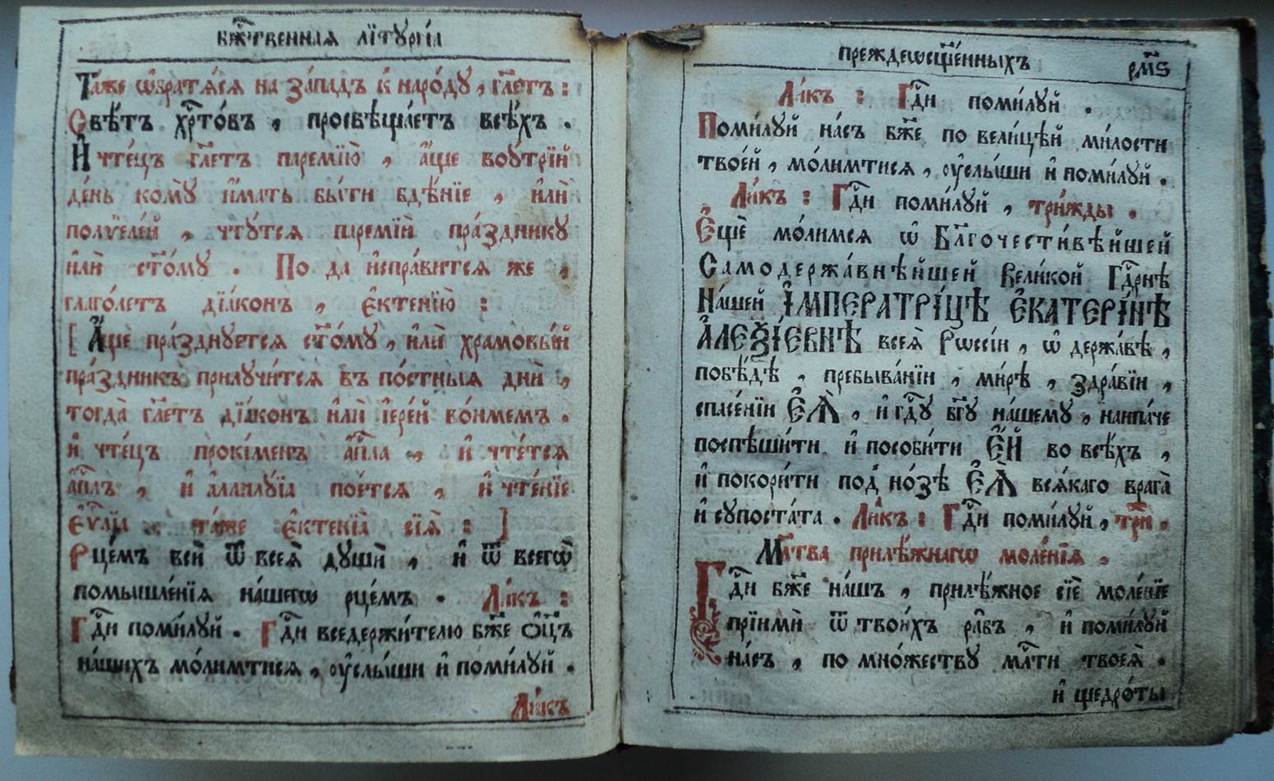 Бж҃твенная лїтургїа
Та́же ѡ҆братѧ́сѧ на за́падъ к̾ наро́ду, гл҃етъ:
Свѣ́тъ хрⷭ҇то́въ, просвѣща́етъ всѣ́хъ.
И҆ чте́цъ гл҃етъ паремі́ю, а҆́ще воꙋ́трїй
де́нь комꙋ̀ и҆́мать бы́ти бдѣ́нїе, и҆лѝ
полѷеле́й, чтꙋ́тсѧ паремі́и пра́здникꙋ
и҆лѝ ст҃о́мꙋ. По да и҆спра́витсѧ же,
глаго́летъ дїа́конъ, є҆ктенїю̀:
[ А҆́ще пра́зднꙋетсѧ ст҃о́мꙋ, и҆лѝ хра́мовый
пра́здникъ прилꙋчи́тсѧ въ по́стныѧ дни̑,
тогда̀ гл҃етъ дїа́конъ и҆лѝ і҆ере́й во́нмемъ.
и҆ чте́цъ прокі́менъ а҆пⷭ҇ла, и҆ чте́тсѧ
а҆пⷭ҇лъ, и҆ а҆ллилꙋ́їа пое́тсѧ, и҆ чте́нїе
є҆ѵⷢ҇лїа та́же є҆ктенїа̀ сїѧ̀: ]
Рце́мъ всѝ ѿ всеѧ̀ дꙋшѝ, и҆ ѿ всегѡ̀
помышле́нїѧ на́шегѡ рце́мъ. Ли́къ:
Гдⷭ҇и поми́лꙋй. Гдⷭ҇и вседержи́телю бж҃е ѻ҆ц҃ъ
на́шихъ мо́лимтисѧ, ᲂу҆слы́ши и҆ поми́лꙋй.
Ли́къ
преждеѡсщ҃е́нныхъ
рм҃ѕ
Ли́къ: Гдⷭ҇и поми́лꙋй.
Поми́лꙋй на́съ бж҃е по вели́цѣй ми́лости
твое́й, мо́лимтисѧ, ᲂу҆слы́ши и҆ поми́лꙋй.
Ли́къ: Гдⷭ҇и поми́лꙋй, три́жды.
Є҆щѐ мо́лимсѧ ѡ҆ Благочести́вѣйшей
Самодержа́внѣйшей Вели́кой Гдⷭ҇рнѣ
На́шей І҆МПЕРАТРІ́ЦѢ Є҆КАТЕРІ́НѢ
А҆ЛЕѮІ́ЕВНѢ всеѧ̀ Рѡссі́и, ѡ҆ держа́вѣ,
побѣ́дѣ, пребыва́нїи, ми́рѣ, здра́вїи,
спасе́нїи Є҆Ѧ̀, и҆ гдⷭ҇ꙋ бг҃ꙋ на́шемꙋ, наипа́че
поспѣши́ти и҆ пособи́ти Є҆́Й во всѣ́хъ,
и҆ покори́ти под̾ но́зѣ Є҆Ѧ̀ всѧ́каго врага̀
и҆ сꙋпоста́та. Ли́къ: Гдⷭ҇и поми́лꙋй, три̑.
Мл҃тва прилѣ́жнагѡ моле́нїѧ.
Гдⷭ҇и бж҃е на́шъ, прилѣ́жное сїѐ моле́нїе
прїимѝ ѿ твои́хъ ра̑бъ, и҆ поми́лꙋй
на́съ, по мно́жествꙋ млⷭ҇ти твоеѧ̀.
и҆ щедро́ты